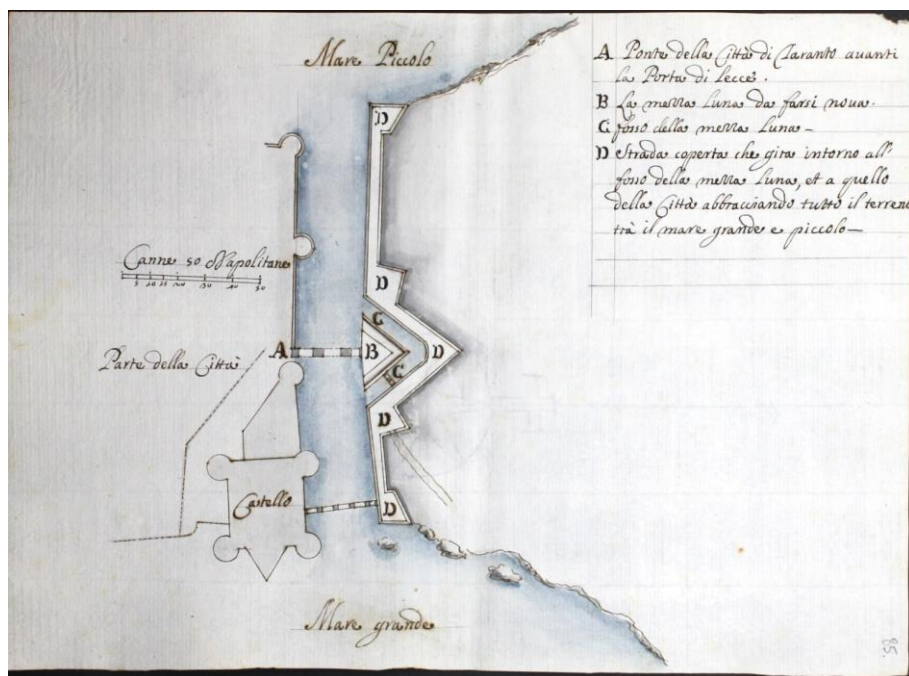 Mare Piccolo
A Ponte della Città di Taranto avanti
la Porta di Lecce.
B La mezza Luna da farsi nova.
C fosso della mezza Luna –
D Strada coperta che gira intorno all'
fosso della mezza Luna, et a quello
della Città abbracciando tutto il terreno
trà il mare grande e piccolo –
D
Canne 50 Napolitane
5 10 15 20 30 40 50
D
C
Parte della Città
A
B
D
C
D
Castello
D
Mare grande
85.